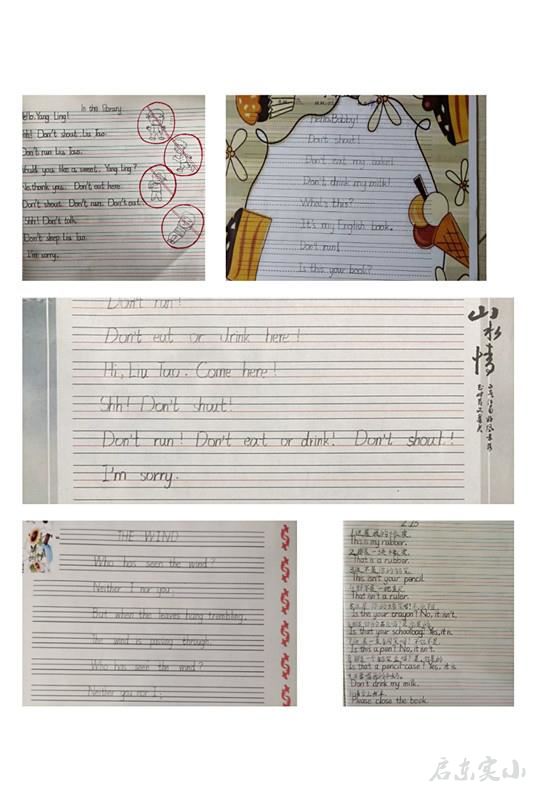 In the library
Hello. Yang Ling!
Shh! Don't shout. Liu Tao.
Don't run Liu Tao.
Would you like a sweet. Yang Ling?
No, thank you. Don't eat here.
Don't shout. Don't run. Don't eat.
Shh! Don't talk.
Don't sleep Liu Tao.
I'm sorry.
Hello. Bobby!
Don't shout!
Don't eat my cake!
Don't drink my milk!
What's this?
It's my English book.
Don't run!
Is this your book?
Don't run!
Don't eat or drink here!
Hi, Liu Tao. Come here!
Shh! Don't shout!
Don't run! Don't eat or drink! Don't shout!
I'm sorry.
山水情
THE WIND
Who has seen the wind?
Neither I nor you,
But when the leaves hang trembling,
The wind is passing through.
Who has seen the wind?
Neither you nor I;
This is my rubber.
That is a rubber.
This isn't your pencil.
That isn't a ruler.
Is this your crayon? No, it isn't.
Is that your schoolbag? Yes, it is.
Is this a pen? No, it isn't.
Is that a pencil case? Yes, it is.
Don't drink my milk.
Please close the book.
启东实小